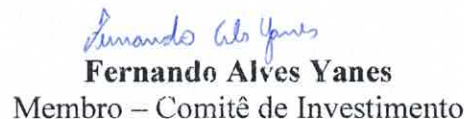 Fernando Alves Yanes
Fernando Alves Yanes
Membro – Comitê de Investimento